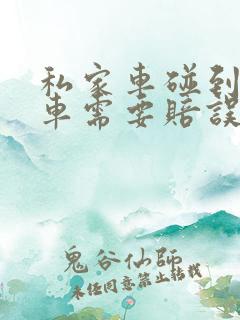 私家車碰到
車需要賠誤
鬼谷仙師
未經同意禁止轉載